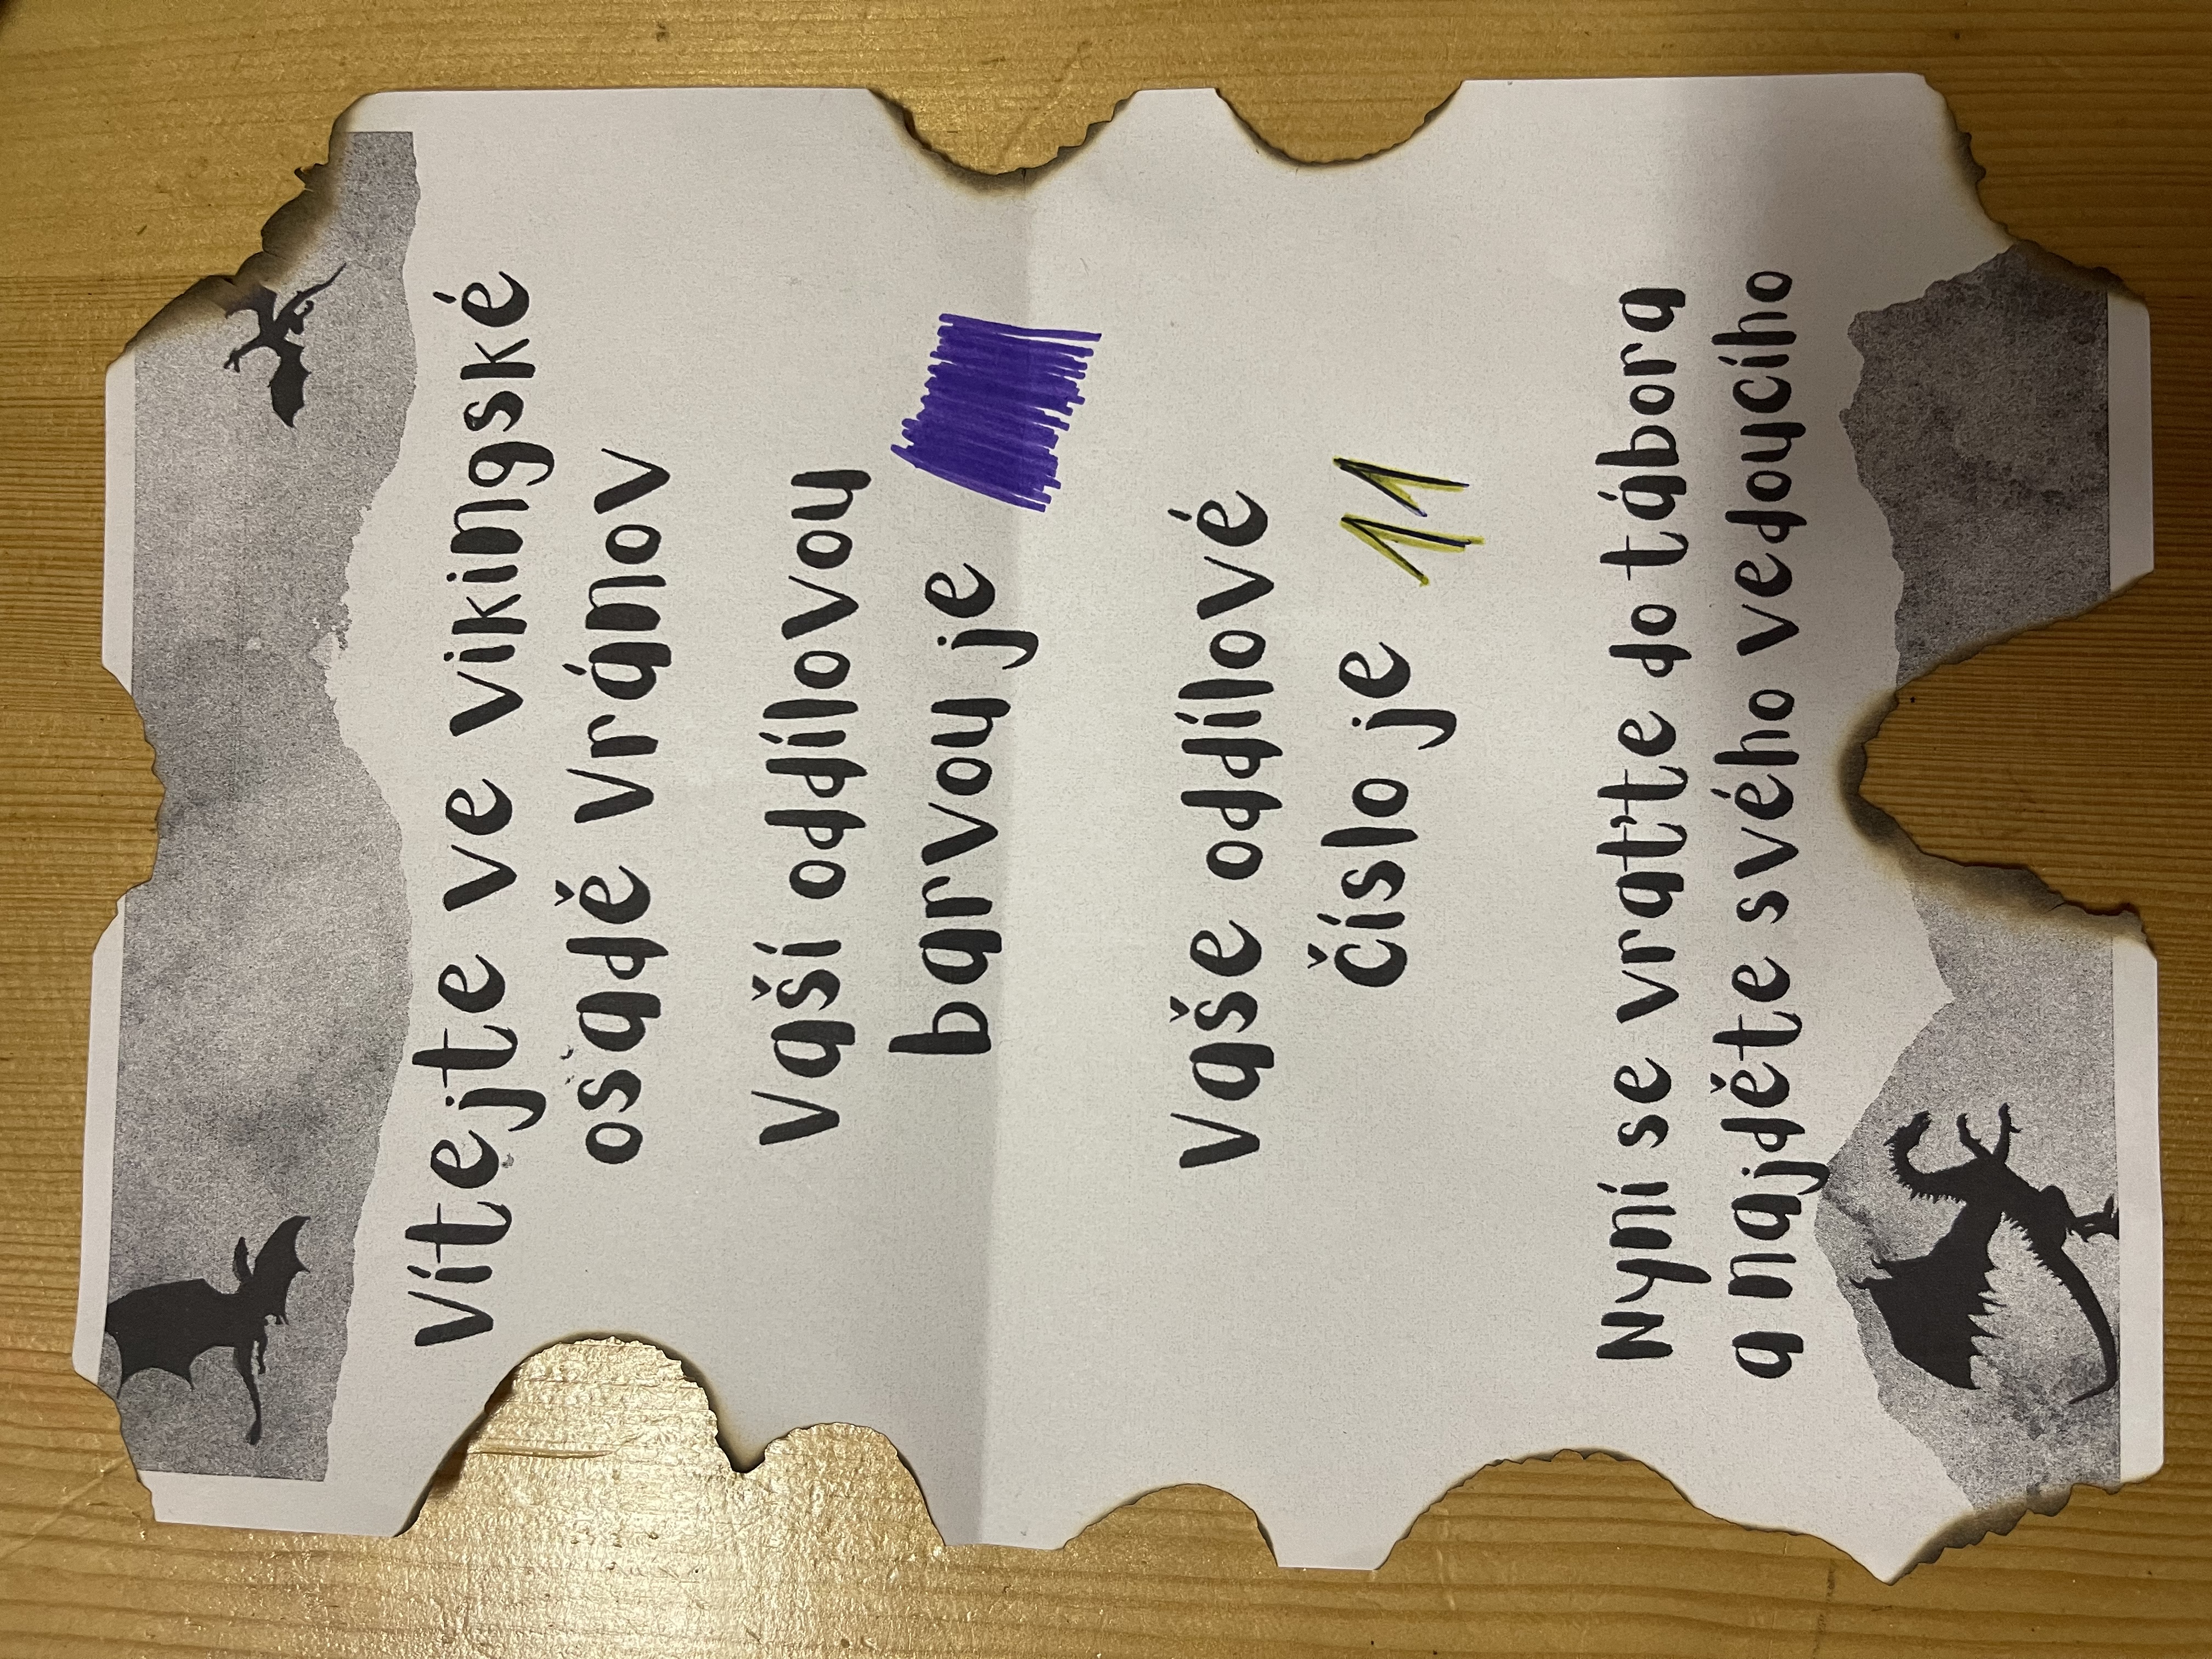 Vítejte ve vikingské
osadě Vránov
Vaší oddílovou
barvou je
Vaše oddílové
číslo je 11
Nyní se vraťte do tábora
a najděte svého vedoucího